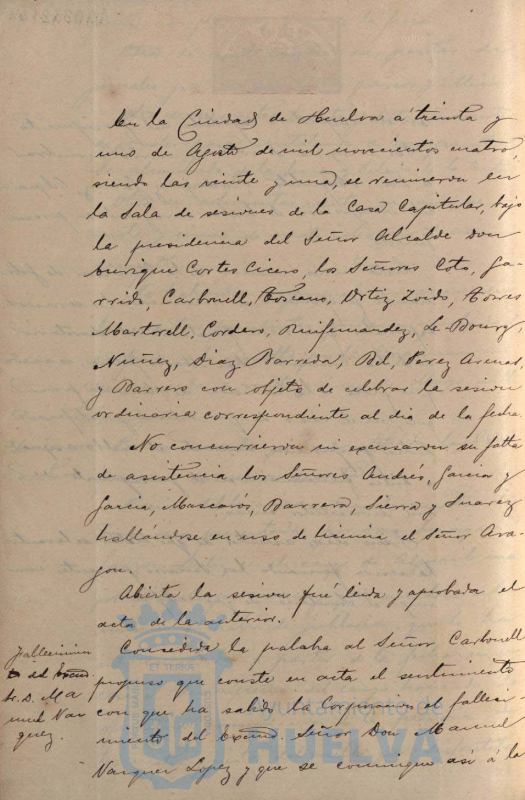 En la Ciudad de Huelva á treinta y
uno de Agosto de mil novecientos cuatro,
siendo las veinte y una, se reunieron en
la Sala de sesiones de la Casa Capitular, bajo
la presidencia del Señor Alcalde don
Enrique Cortes Cicero, los Señores Coto, Ga-
rrido, Carbonell, Toscano, Ortiz Zoido, Torres
Martorell, Cordero, Ruifernandez, Le-Bourg,
Nuñez, Diaz Barreda, Bel, Perez Arenas,
y Barrero con objeto de celebrar la sesion
ordinaria correspondiente al dia de la fecha.
No concurrieron ni excusaron su falta
de asistencia los Señores Andrés, Garcia y
Garcia, Mascarós, Barrera, Sierra y Suarez
hallándose en uso de licencia el Señor Ara-
gon.
Abierta la sesion fué leida y aprobada el
acta de la anterior.
Fallecimien
to del Excmo
Sr. D. Ma
nuel Vaz
quez.
Concedida la palabra al Señor Carbonell
propuso que conste en acta el sentimiento
con que ha sabido la Corporacion el falleci
miento del Excmo. Señor Don Manuel
Vazquez Lopez y que se comunique así á la
Ayuntamiento de
HUELVA